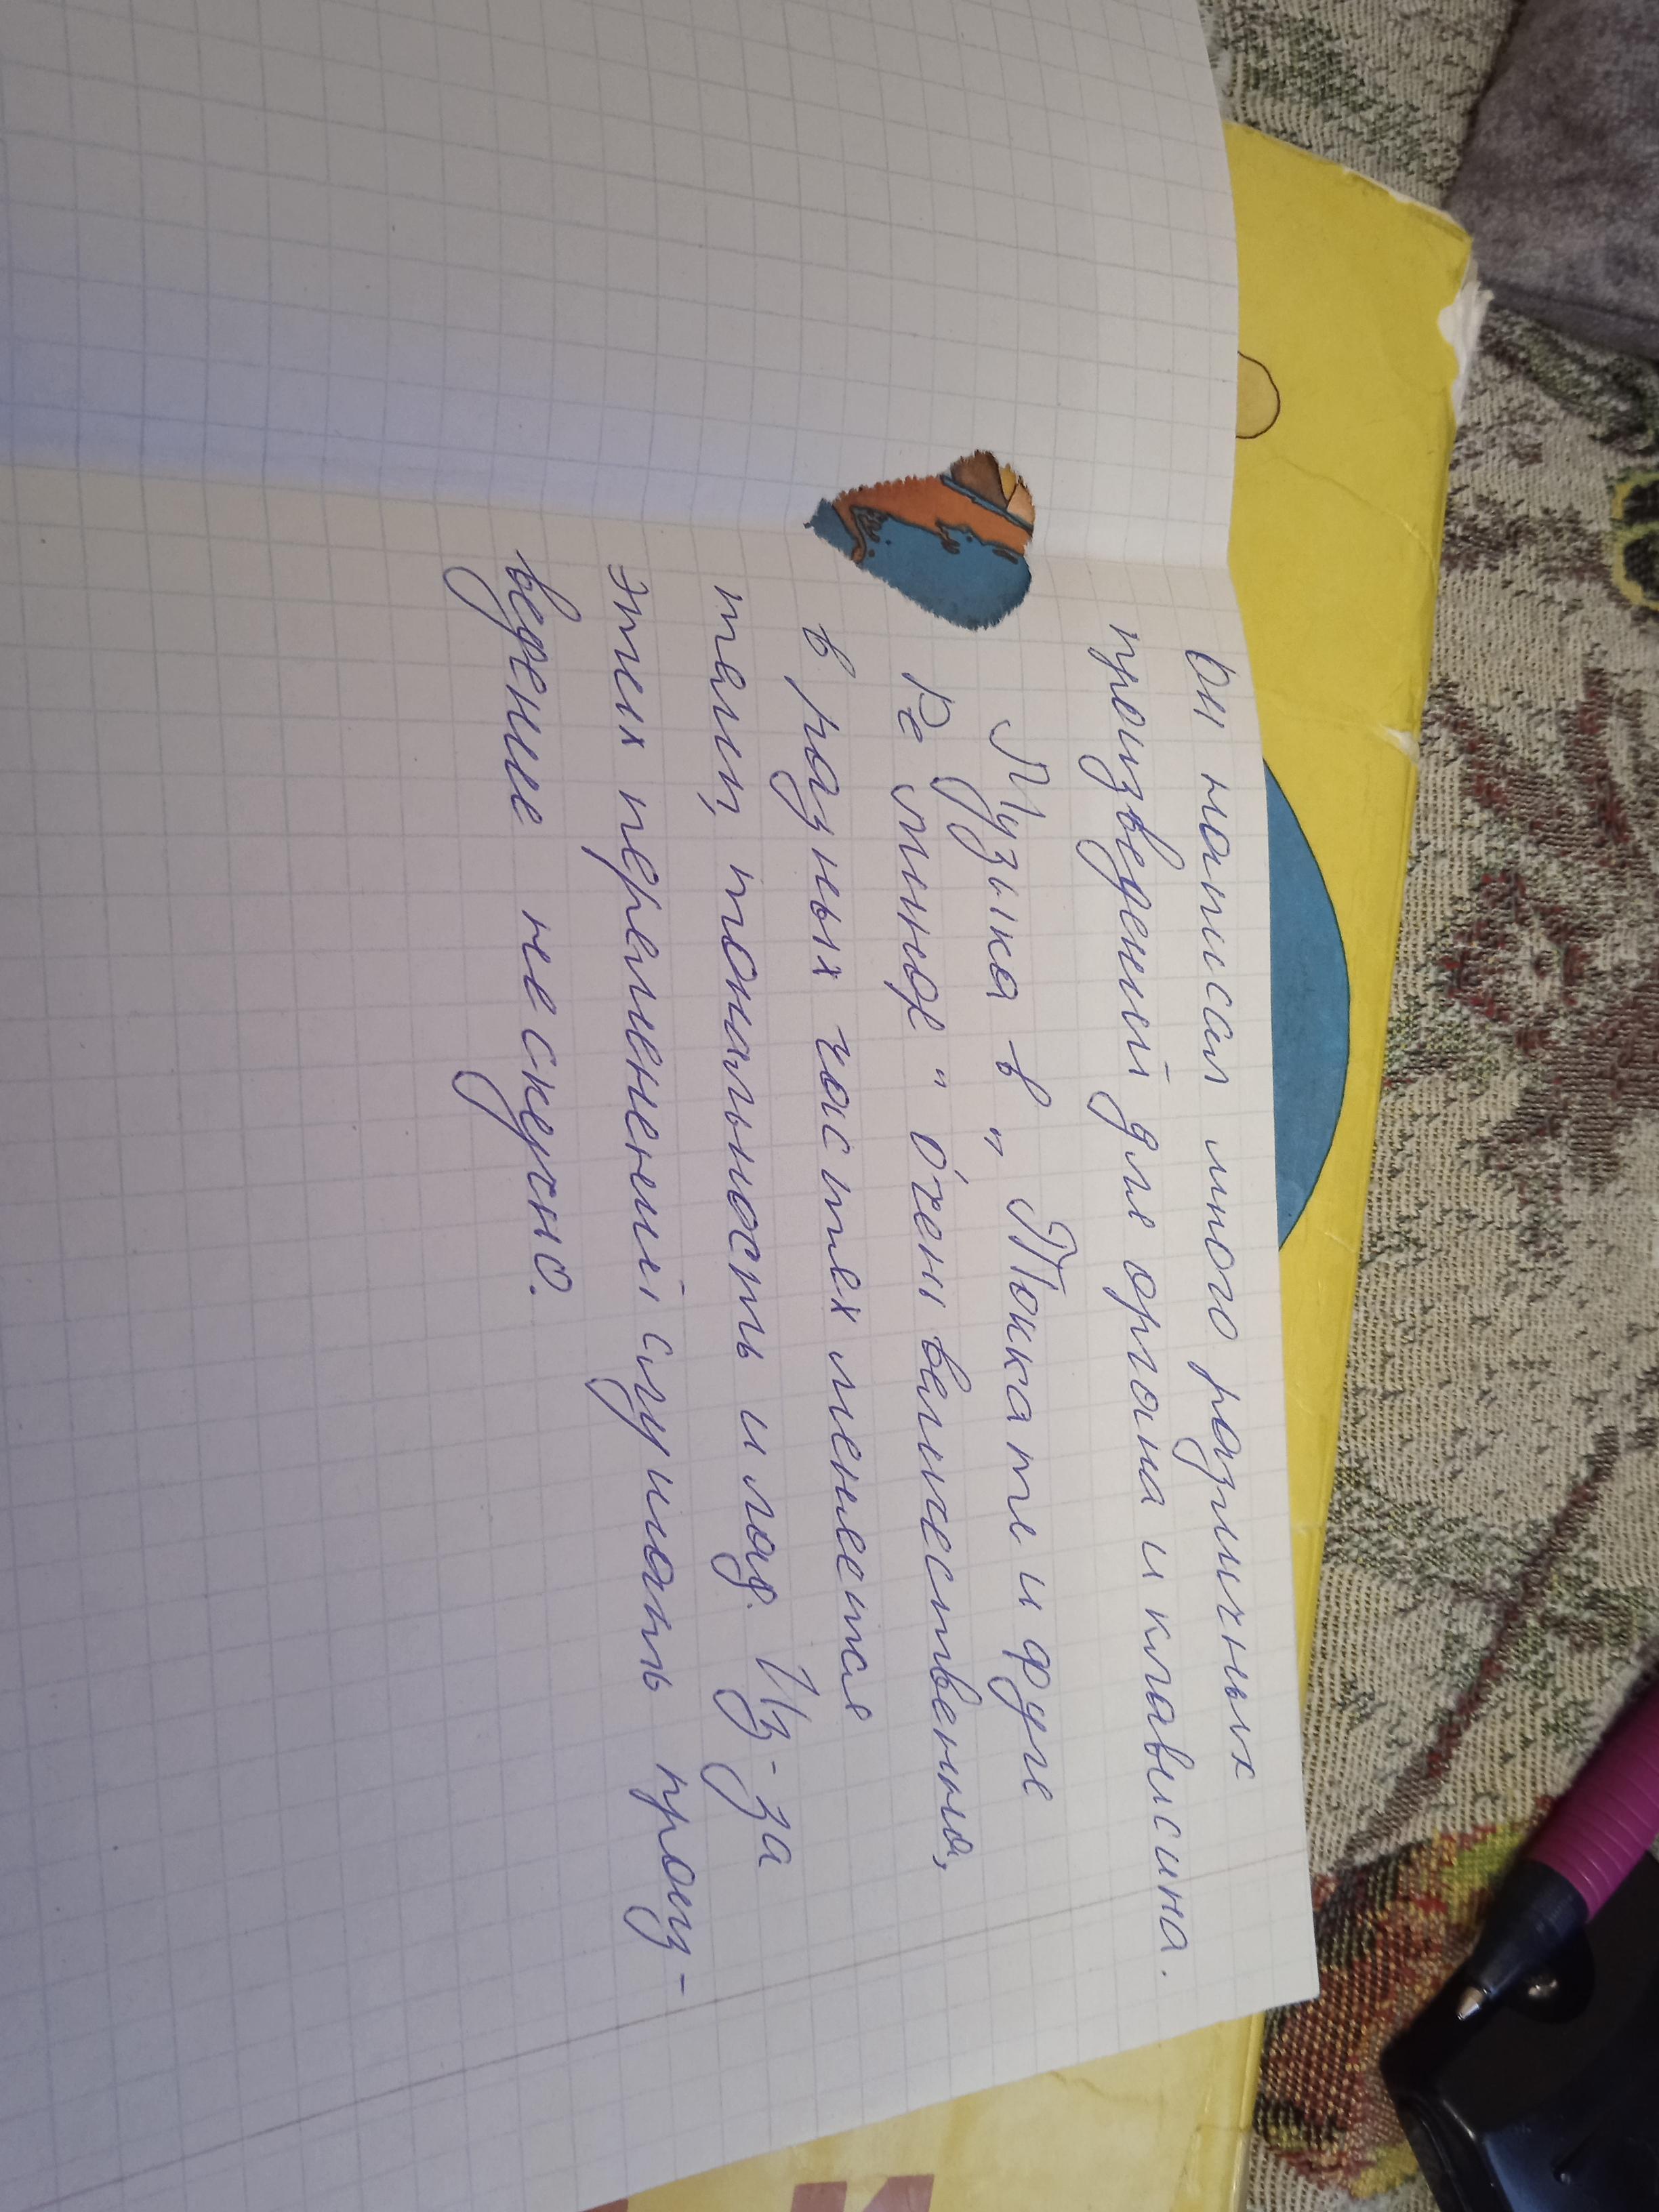 Он написал много различных
произведений для органа и клависина.
Музыка в „Токкате и фуге
Ре минор" очень величественна,
в разных частях меняется
темп, тональность и лад. Из-за
этих переменений слушать произ-
ведение нескучно.
И